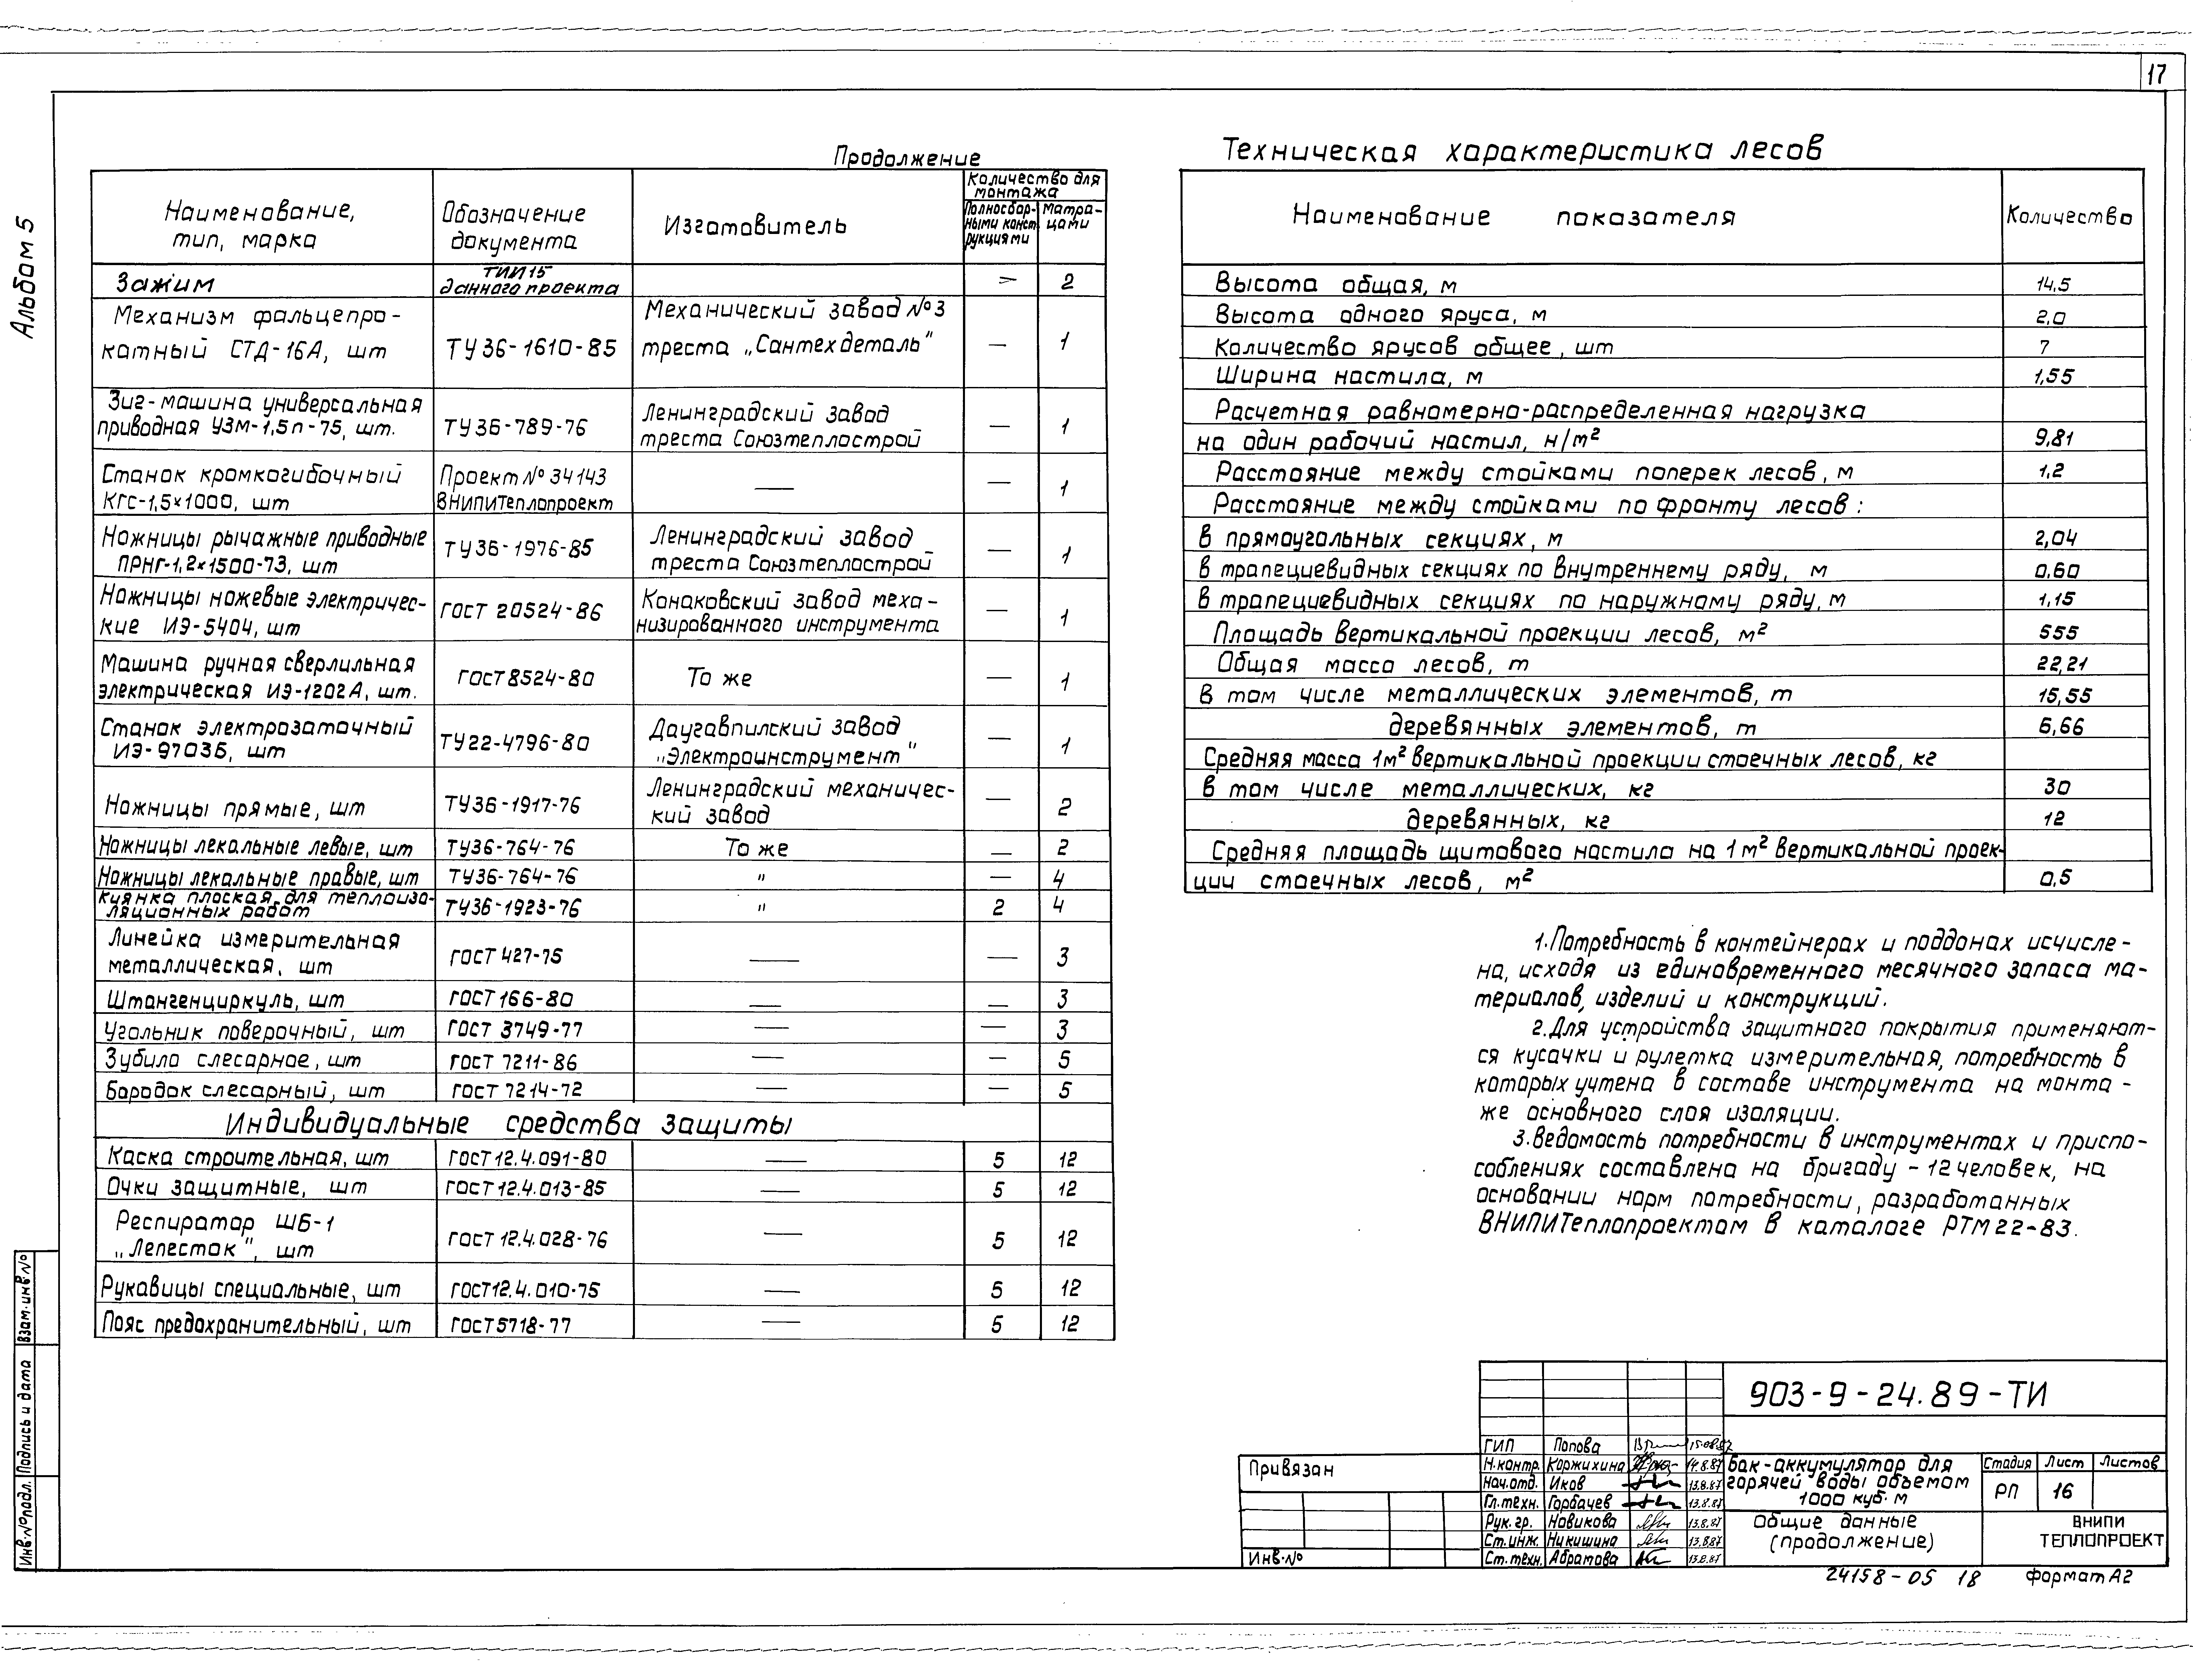 17
Альбом 5
Продолжение
Наименование, тип, марка | Обозначение документа | Изготовитель | Количество для монтажа
Полносбор-ными конст рукциями | матра-цами
Зажим | ТИИ15 данного проекта | | — | 2
Механизм фальцепро-катный СТД-16А, шт | ТУ 36-1610-85 | Механический завод №3 треста „Сантехдеталь" | — | 1
Зиг-машина универсальная приводная УЗМ-1,5п-75, шт. | ТУ36-789-76 | Ленинградский завод треста Союзтеплострой | — | 1
Станок кромкогибочный КГС-1,5×1000, шт | Проект №34143 ВНИПИТеплопроект | — | — | 1
Ножницы рычажные приводные ПРНГ-1,2×1500-73, шт | ТУ36-1976-85 | Ленинградский завод треста Союзтеплострой | — | 1
Ножницы ножевые электричес-кие ИЭ-5404, шт | ГОСТ 20524-86 | Конаковский завод меха-низированного инструмента | — | 1
Машина ручная сверлильная электрическая ИЭ-1202А, шт. | ГОСТ8524-80 | То же | — | 1
Станок электрозаточный ИЭ-9703Б, шт | ТУ22-4796-80 | Даугавпилский завод „Электроинструмент" | — | 1
Ножницы прямые, шт | ТУ36-1917-76 | Ленинградский механичес-кий завод | — | 2
Ножницы лекальные левые, шт | ТУ36-764-76 | То же | — | 2
Ножницы лекальные правые, шт | ТУ36-764-76 | " | — | 4
Киянка плоская для теплоизо-ляционных работ | ТУ36-1923-76 | " | 2 | 4
Линейка измерительная металлическая, шт | ГОСТ 427-75 | — | — | 3
Штангенциркуль, шт | ГОСТ 166-80 | — | — | 3
Угольник поверочный, шт | ГОСТ 3749-77 | — | — | 3
Зубило слесарное, шт | ГОСТ 7211-86 | — | — | 5
Бородок слесарный, шт | ГОСТ 7214-72 | — | — | 5
Индивидуальные средства защиты
Каска строительная, шт | ГОСТ12.4.091-80 | — | 5 | 12
Очки защитные, шт | ГОСТ12.4.013-85 | — | 5 | 12
Респиратор ШБ-1 „Лепесток", шт | ГОСТ 12.4.028-76 | — | 5 | 12
Рукавицы специальные, шт | ГОСТ12.4.010-75 | — | 5 | 12
Пояс предохранительный, шт | ГОСТ5718-77 | — | 5 | 12
Техническая характеристика лесов
Наименование показателя | Количество
Высота общая, м | 14,5
Высота одного яруса, м | 2,0
Количество ярусов общее, шт | 7
Ширина настила, м | 1,55
Расчетная равномерно-распределенная нагрузка
на один рабочий настил, н/м² | 9,81
Расстояние между стойками поперек лесов, м | 1,2
Расстояние между стойками по фронту лесов:
в прямоугольных секциях, м | 2,04
в трапециевидных секциях по внутреннему ряду, м | 0,60
в трапециевидных секциях по наружному ряду, м | 1,15
Площадь вертикальной проекции лесов, м² | 555
Общая масса лесов, т | 22,21
в том числе металлических элементов, т | 15,55
деревянных элементов, т | 6,66
Средняя масса 1м² вертикальной проекции стоечных лесов, кг
в том числе металлических, кг | 30
деревянных, кг | 12
Средняя площадь щитового настила на 1м² вертикальной проек-
ции стоечных лесов, м² | 0,5
1.Потребность в контейнерах и поддонах исчисле-
на, исходя из единовременного месячного запаса ма-
териалов, изделий и конструкций.
2.Для устройства защитного покрытия применяют-
ся кусачки и рулетка измерительная, потребность в
которых учтена в составе инструмента на монта-
же основного слоя изоляции.
3.Ведомость потребности в инструментах и приспо-
соблениях составлена на бригаду - 12 человек, на
основании норм потребности, разработанных
ВНИПИТеплопроектом в каталоге РТМ22-83.
Инв.№подл. Подпись и дата Взам.инв№
Привязан
Инв.№
903-9-24.89-ТИ
ГИП Попова 15.08.87
Н.контр. Коржихина 14.8.87
Нач.отд. Иков 13.8.87
Гл.техн. Горбачев 13.8.87
Рук.гр. Новикова 13.8.87
Ст.инж. Никишина 13.8.87
Ст.техн. Абратова 13.8.87
Бак-аккумулятор для
горячей воды объемом
1000 куб.м
Стадия Лист Листов
РП 16
Общие данные
(продолжение)
ВНИПИ
ТЕПЛОПРОЕКТ
24158-05 18 Формат А2